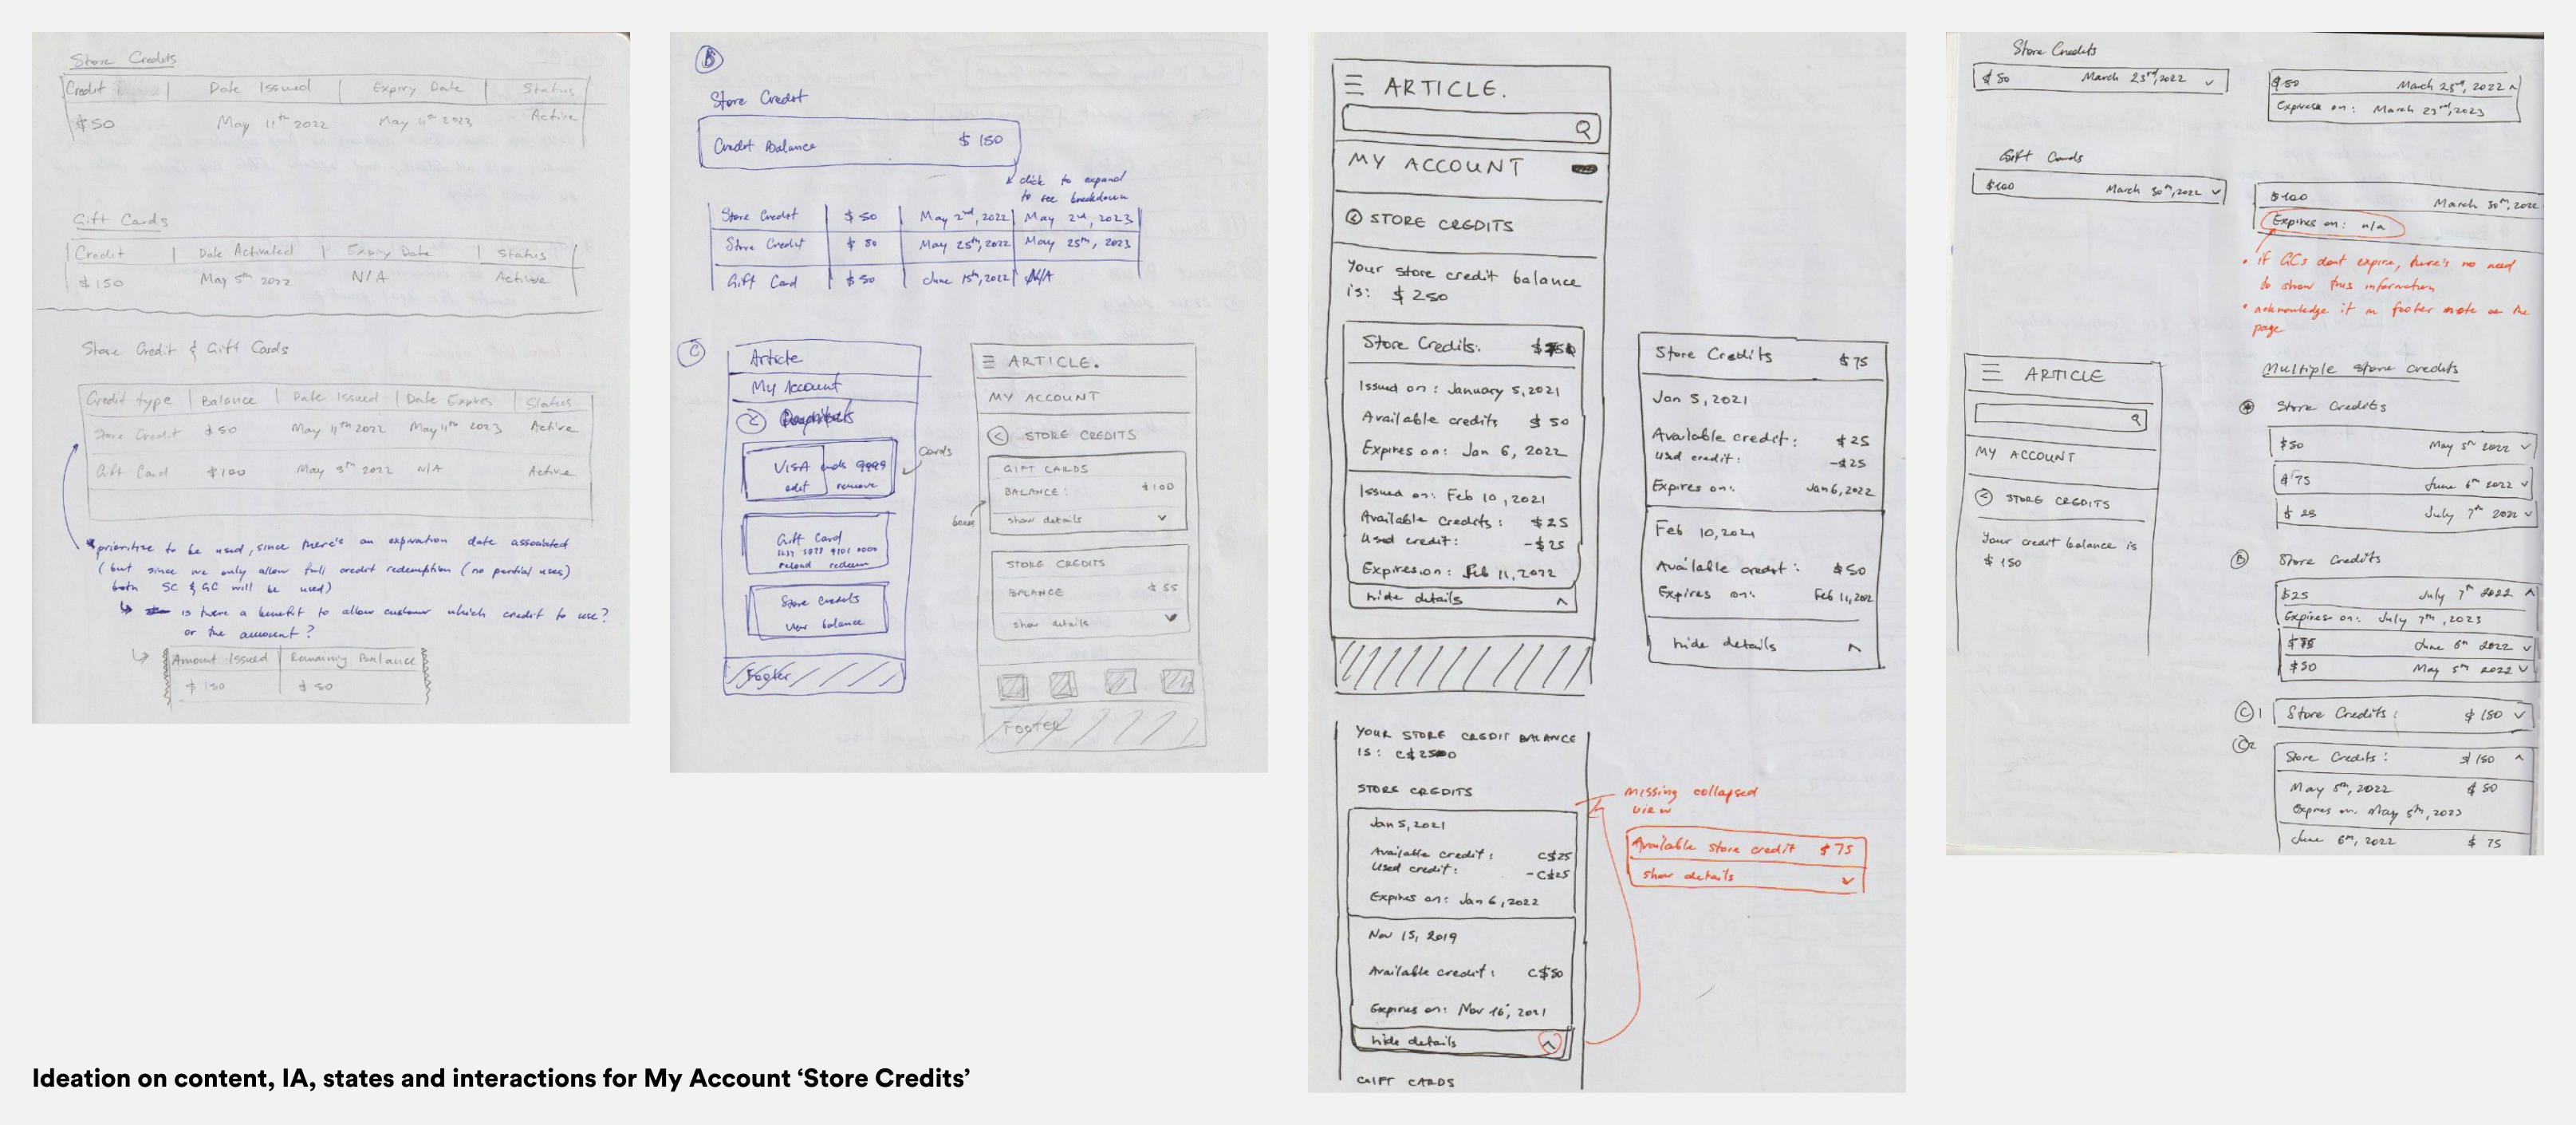 Store Credits
Credit | Date Issued | Expiry Date | Status
$50 May 11th 2022 May 11th 2023 Active
Gift Cards
Credit | Date Activated | Expiry Date | Status
$150 May 5th 2022 N/A Active
Store Credit & Gift Cards
Credit type | Balance | Date Issued | Date Expires | Status
Store Credit $50 May 11th 2022 May 11th 2023 Active
Gift Card $100 May 5th 2022 N/A Active
*prioritize to be used, since there's an expiration date associated
(but since we only allow full credit redemption (no partial uses)
both SC & GC will be used)
is there a benefit to allow customer which credit to use?
or the amount?
Amount Issued | Remaining Balance
$150 $50
B
Store Credit
Credit Balance $150
click to expand
to see breakdown
Store Credit | $50 | May 2nd, 2022 | May 2nd, 2023
Store Credit | $50 | May 25th, 2022 | May 25th, 2023
Gift Card | $50 | June 15th, 2022 | N/A
C
Article
My Account
VISA ends 9999
edit remove
cards
Gift Card
reload redeem
Store Credits
View balance
Footer
ARTICLE.
MY ACCOUNT
STORE CREDITS
GIFT CARDS
BALANCE: $100
show details
boxes
STORE CREDITS
BALANCE $55
show details
Footer
ARTICLE.
MY ACCOUNT
STORE CREDITS
Your store credit balance
is: $250
Store Credits:
Issued on: January 5, 2021
Available credits $50
Expires on: Jan 6, 2022
Issued on: Feb 10, 2021
Available Credits: $25
Used credit: -$25
Expires on: Feb 11, 2022
hide details
Store Credits $75
Jan 5, 2021
Available credit: $25
Used credit: -$25
Expires on: Jan 6, 2022
Feb 10, 2021
Available credit: $50
Expires on: Feb 11, 2022
hide details
YOUR STORE CREDIT BALANCE
IS:
STORE CREDITS
Jan 5, 2021
Available credit: C$25
Used credit: -C$25
Expires on: Jan 6, 2022
Nov 15, 2019
Available credit: C$50
Expires on: Nov 16, 2021
hide details
GIFT CARDS
missing collapsed
view
Available store credit $75
show details
Store Credits
$50 March 23rd, 2022
$50 March 23rd, 2022
Expires on: March 23rd, 2023
Gift Cards
$100 March 30th, 2022
$100 March 30th, 2022
Expires on: n/a
• if GCs dont expire, there's no need
to show this information
• acknowledge it in footer note on the
page
ARTICLE
MY ACCOUNT
STORE CREDITS
Your credit balance is
$150
Multiple store credits
Store Credits
$50 May 5th 2022
$75 June 6th 2022
$25 July 7th 2022
B Store Credits
$25 July 7th 2022
Expires on: July 7th, 2023
$75 June 6th 2022
$50 May 5th 2022
C1 Store Credits: $150
C2
Store Credits: $150
May 5th, 2022 $50
Expires on: May 5th, 2023
June 6th, 2022 $75
Ideation on content, IA, states and interactions for My Account ‘Store Credits’